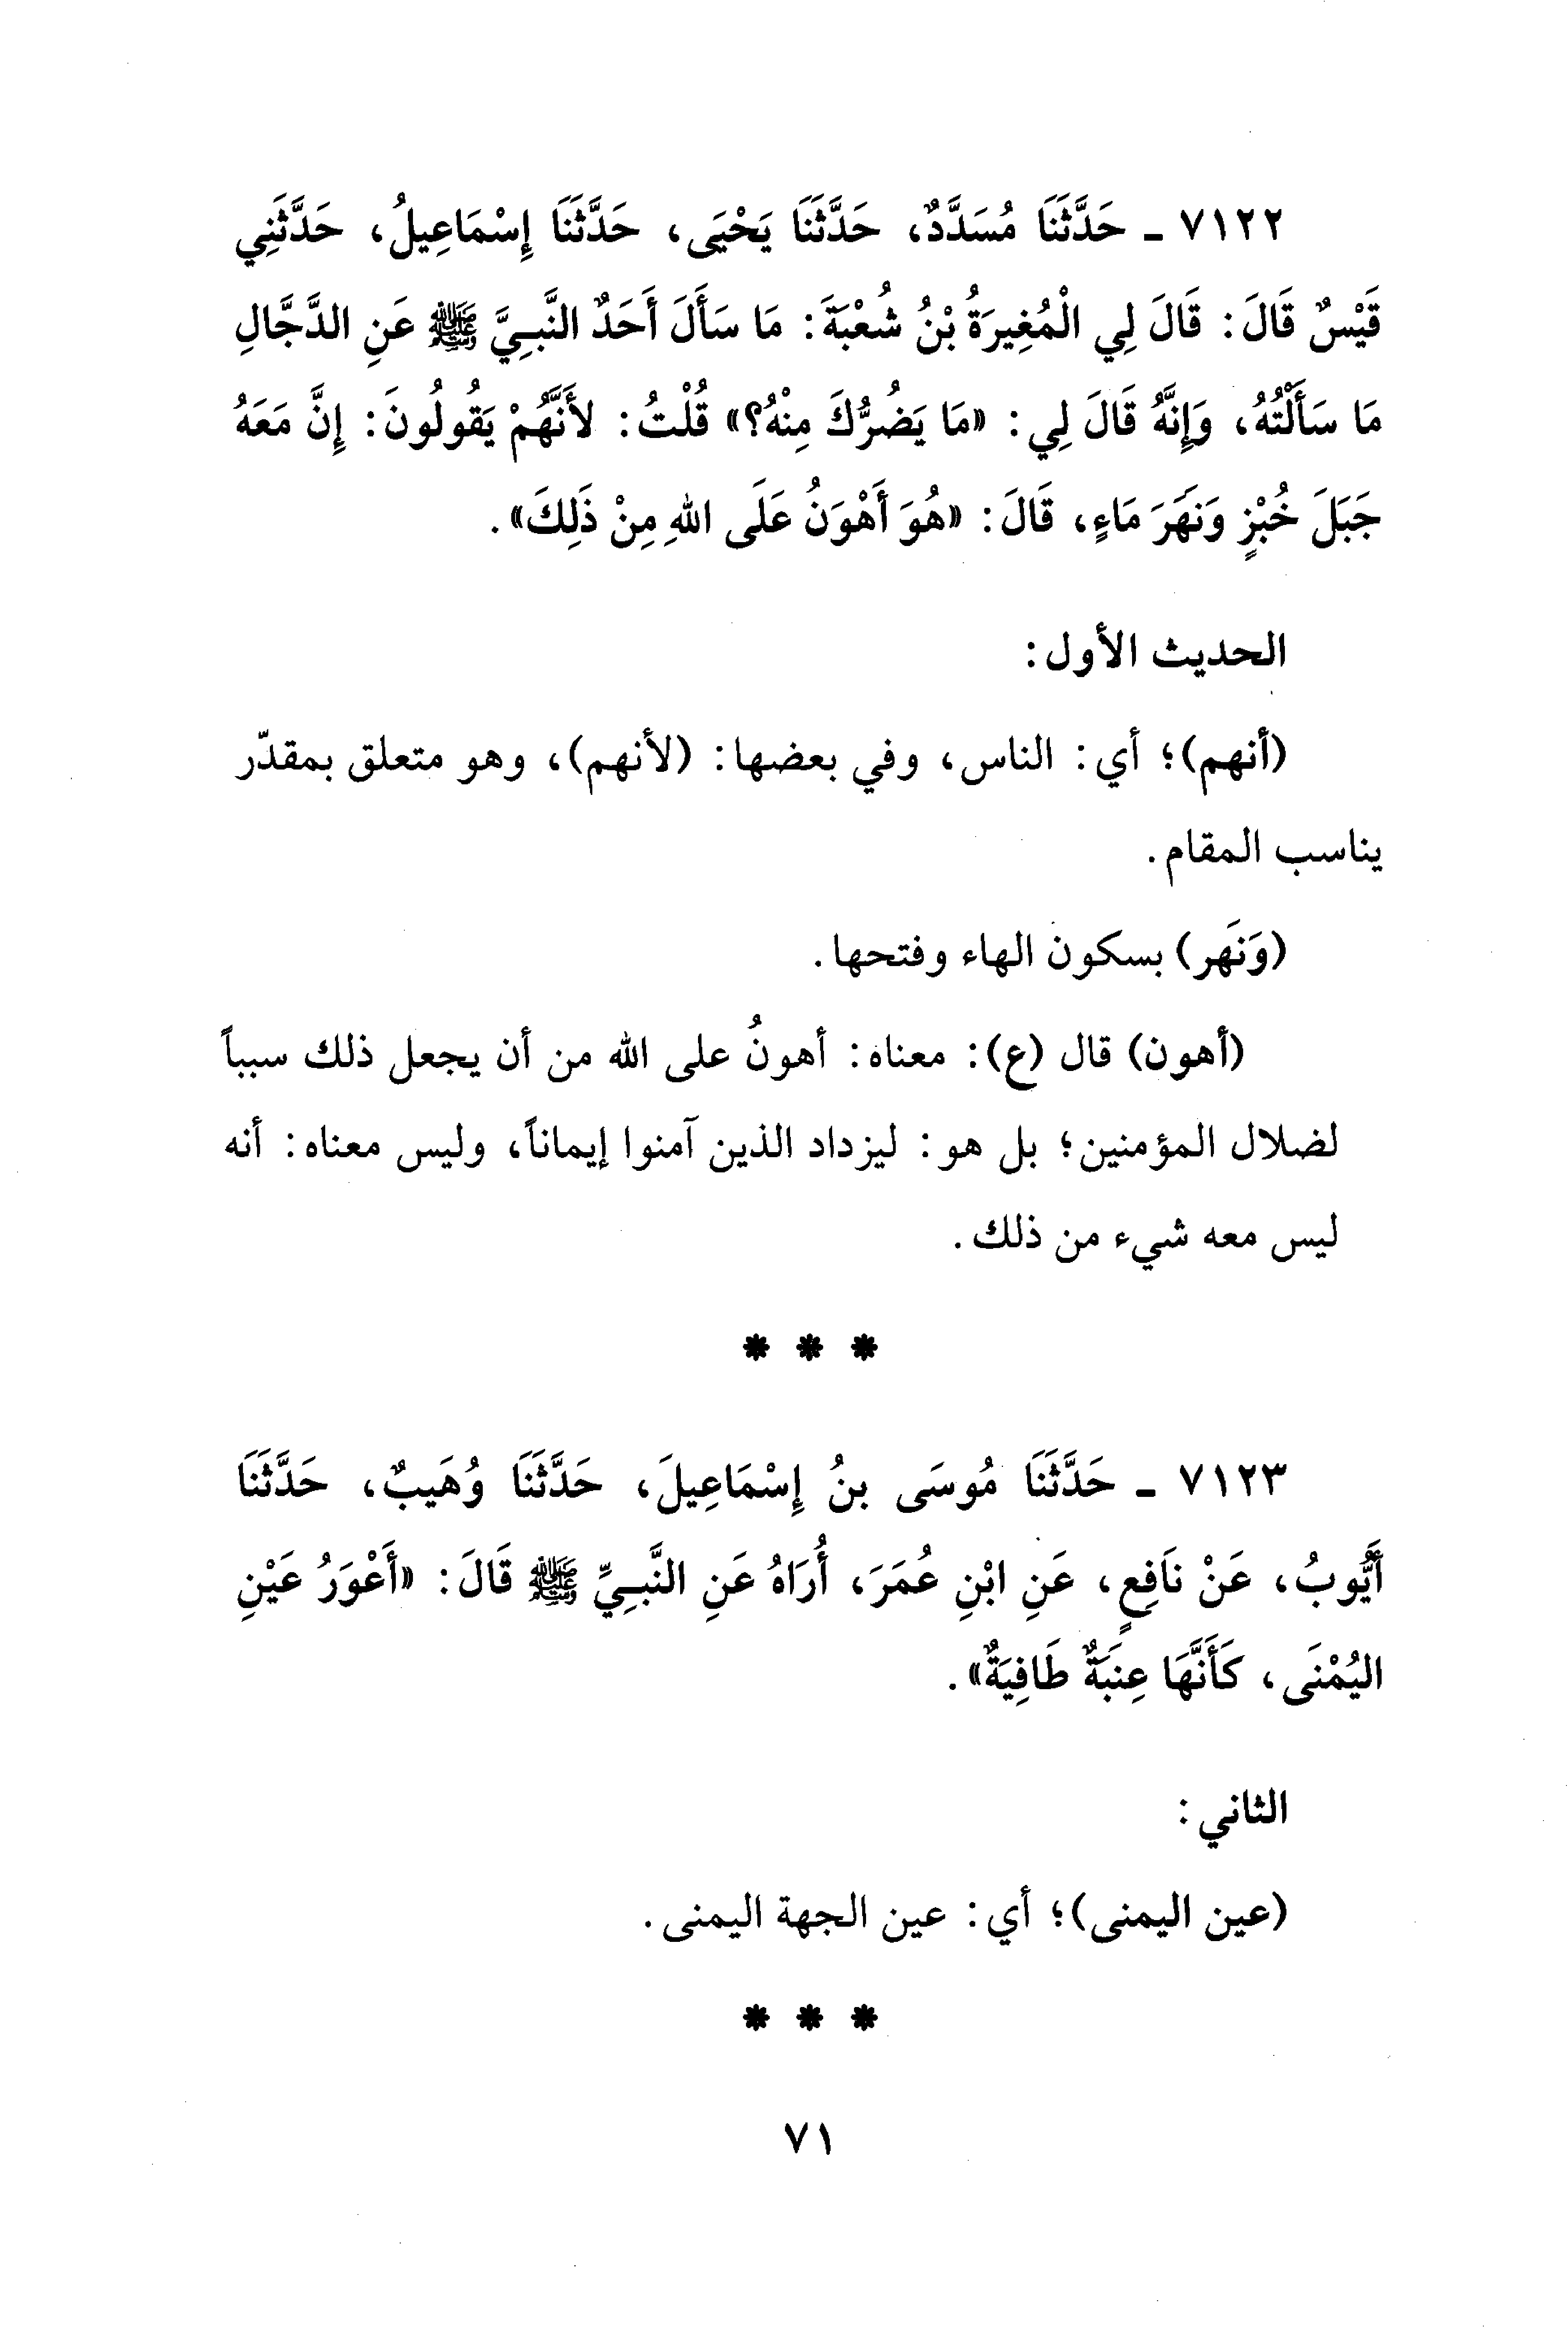 ٧١٢٢ ـ حَدَّثَنَا مُسَدَّدٌ، حَدَّثَنَا يَحْيَى، حَدَّثَنَا إِسْمَاعِيلُ، حَدَّثَنِي
قَيْسٌ قَالَ: قَالَ لِي الْمُغِيرَةُ بْنُ شُعْبَةَ: مَا سَأَلَ أَحَدٌ النَّبِيَّ ﷺ عَنِ الدَّجَّالِ
مَا سَأَلْتُهُ، وَإِنَّهُ قَالَ لِي: «مَا يَضُرُّكَ مِنْهُ؟» قُلْتُ: لأَنَّهُمْ يَقُولُونَ: إِنَّ مَعَهُ
جَبَلَ خُبْزٍ وَنَهَرَ مَاءٍ، قَالَ: «هُوَ أَهْوَنُ عَلَى اللهِ مِنْ ذَلِكَ».
الحديث الأول:
(أنهم)؛ أي: الناس، وفي بعضها: (لأنهم)، وهو متعلق بمقدّر
يناسب المقام.
(وَنَهَر) بسكون الهاء وفتحها.
(أهون) قال (ع): معناه: أهونُ على الله من أن يجعل ذلك سبباً
لضلال المؤمنين؛ بل هو: ليزداد الذين آمنوا إيماناً، وليس معناه: أنه
ليس معه شيء من ذلك.
* * *
٧١٢٣ ـ حَدَّثَنَا مُوسَى بنُ إِسْمَاعِيلَ، حَدَّثَنَا وُهَيبٌ، حَدَّثَنَا
أَيُّوبُ، عَنْ نَافِعٍ، عَنِ ابْنِ عُمَرَ، أُرَاهُ عَنِ النَّبِيِّ ﷺ قَالَ: «أَعْوَرُ عَيْنِ
اليُمْنَى، كَأَنَّهَا عِنَبَةٌ طَافِيَةٌ».
الثاني:
(عين اليمنى)؛ أي: عين الجهة اليمنى.
* * *
٧١